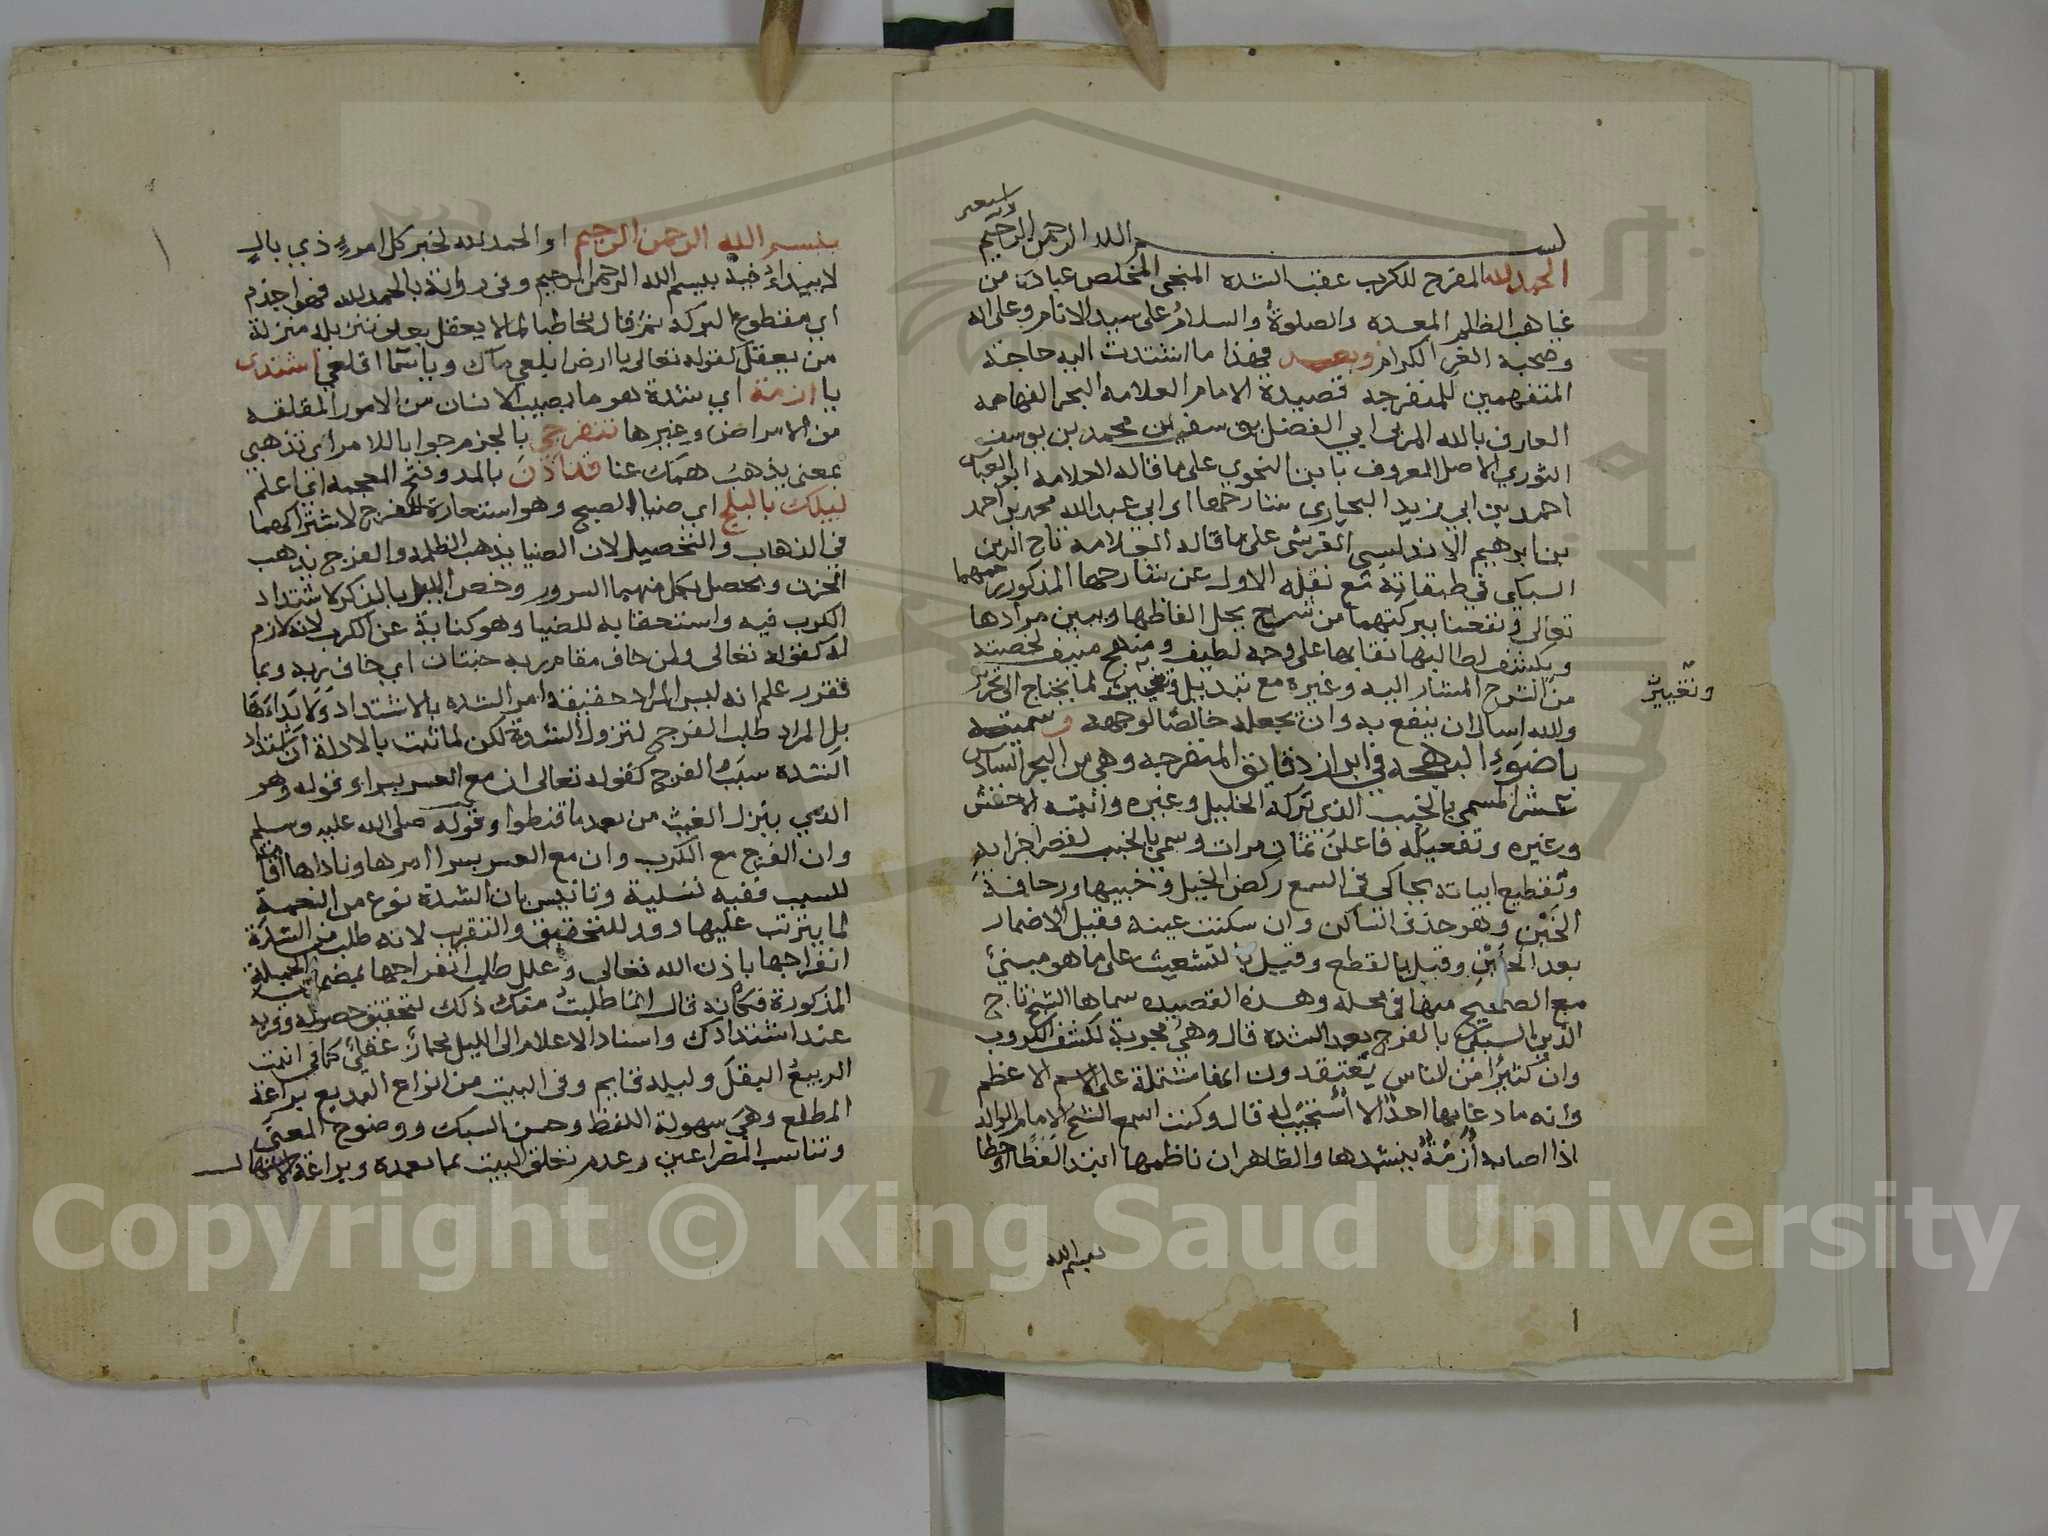 وبه نستعين
بسم الله الرحمن الرحيم
الحمد لله المفرج للكرب عقب الشده المنجي المخلص عباده من
غياهب الظلم المعده والصلوة والسلام على سيد الانام وعلى اله
وصحبه الغر الكرام وبعد فهذا ما اشتدت اليه حاجة
المتفهمين للمنفرجة قصيدة الامام العلامه البحر الفهامه
العارف بالله ابي الفضل يوسف بن محمد بن يوسف
التوزري الاصل المعروف بابن النحوي على ما قاله العلامه ابو العباس
احمد بن ابي زيد البجاري شارحها او ابي عبد الله محمد بن احمد
بن ابرهيم الاندلسي القرشي على ما قاله العلامه تاج الدين
السبكي في طبقاته مع نقله الاول عن شارحها المذكور رحمهما
تعالى ونفعنا ببركتهما من شرح يحل الفاظها ويبين مرادها
ويكشف لطالبها نقابها على وجه لطيف ومنهج منيف لخصته
من الشرح المشار اليه وغيره مع تبديل وتغيير لما يحتاج الى تحرير
وتغيير
والله اسال ان ينفع به وان يجعله خالصا لوجهه وسميته
باضوء البهجه في ابراز دقايق المنفرجه وهي من البحر السادس
عشر المسمى بالخبب الذي تركه الخليل وغيره واثبته الاخفش
وغيره وتفعيله فاعلن ثمان مرات وسمي بالخبب لقصر اجزايه
وتقطيع ابياته يحاكي في السمع ركض الخيل وخببها وزحافه
الخبن وهو حذف الساكن وان سكنت عينه فقيل الاضمار
بعد الخبن وقيل بالقطع وقيل بالتشعيث على ما هو مبني
مع الصحيح منها في محله وهذه القصيده سماها الشيخ تاج
الدين السبكي بالفرج بعد الشده قال وهي مجربة لكشف الكروب
وان كثيرا من الناس يعتقدون انها مشتملة على الاسم الاعظم
وانه ما دعا بها احد الا استجيب له قال وكنت اسمع الشيخ الامام الوالد
اذا اصابه ازمة ينشدها والظاهر ان ناظمها ابتدا لفظا وخطا
بسم الله
بسم الله الرحمن الرحيم او الحمد لله لخبر كل امرء ذي بال
لا يبدا فيه ببسم الله الرحمن الرحيم وفي رواية بالحمد لله فهو اجذم
اي مقطوع البركه ثم قال مخاطبا لما لا يعقل بعد تنزيله منزلة
من يعقل كقوله تعالى يا ارض ابلعي ماءك ويا سما اقلعي اشتدى
يا ازمة اي شدة وهو ما يصيب الانسان من الامور المقلقه
من الامراض وغيرها تنفرجي بالجزم جوابا للامر اي تذهبي
بمعنى يذهب همك عنا قد آذن بالمد وفتح المعجمه اي اعلم
ليلك بالبلج اي ضياء الصبح وهو استعارة للفرج لاشتراكهما
في الذهاب والتحصيل لان الضيا يذهب الظلمه والفرج يذهب
الحزن ويحصل بكل منهما السرور وخص الليل بالذكر لاشتداد
الكرب فيه واستحقابه للضيا وهو كناية عن الكرب لانه لازم
له كقوله تعالى ولمن خاف مقام ربه جنتان اي خاف ربه وبما
تقرر علم انه ليس المراد حقيقة امر الشده بالاشتداد ولا نداءها
بل المراد طلب الفرج لتزول الشدة لكن لما ثبت بالادلة ان اشتداد
الشده سبب الفرج كقوله تعالى ان مع العسر يسرا وقوله وهو
الذي ينزل الغيث من بعد ما قنطوا وقوله صلى الله عليه وسلم
وان الفرج مع الكرب وان مع العسر يسرا امرها وناداها اقامة
للسبب ففيه تسلية وتانيس بان الشدة نوع من النعمة
لما يترتب عليها وقد للتحقيق والتقريب لانه طلب من الشدة
انفراجها باذن الله تعالى وعلل طلب انفراجها بمضمون الجملة
المذكورة فكانه قال انما طلبت منك ذلك لتحقيق حصوله وقربه
عند اشتدادك واسناد الاعلام الى الليل مجاز عقلي كما في انبت
الربيع البقل وليله قايم وفي البيت من انواع البديع براعة
المطلع وهي سهولة اللفظ وحسن السبك ووضوح المعنى
وتناسب المصراعين وعدم تعلق البيت بما بعده وبراعة الاستهلال